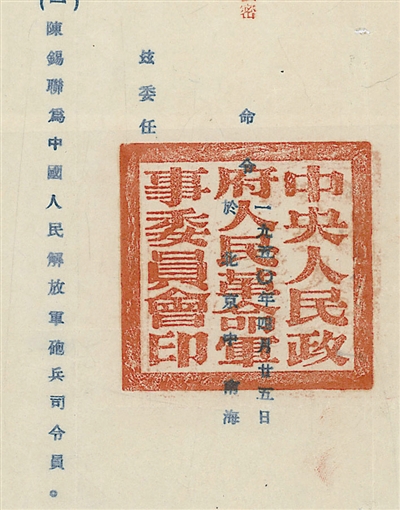 密
命令
一九五〇年四月廿五日
於北京中南海
中央人民政
府人民革命軍
事委員會印
玆委任
陳錫聯爲中國人民解放軍砲兵司令員。